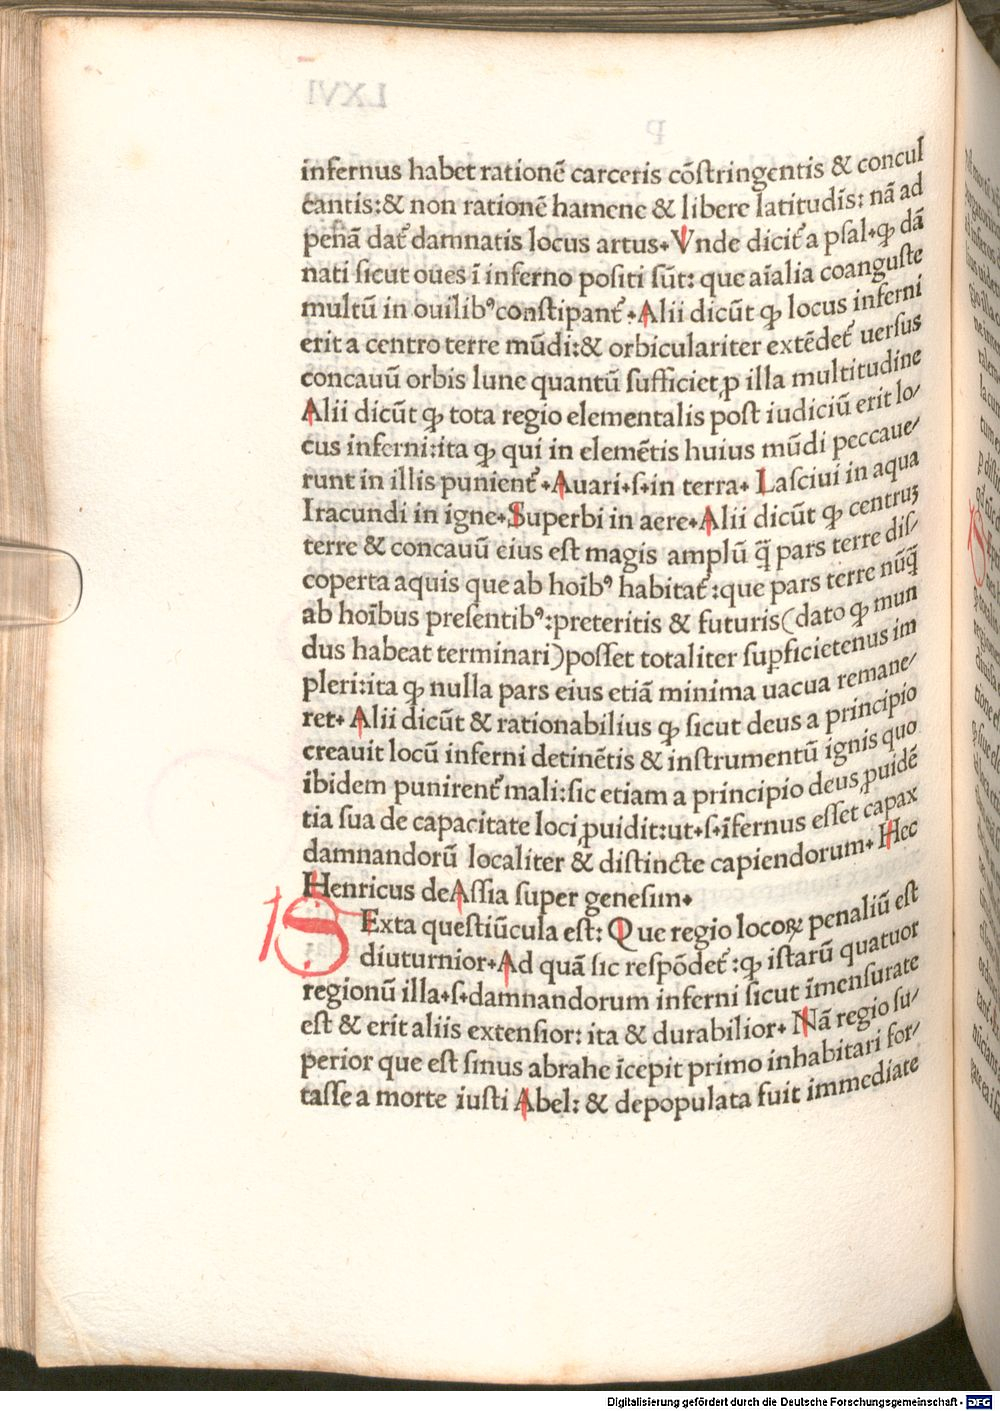 infernus habet rationē carceris cōſtringentis & concul
cantis:& non rationē hamene & libere latitudīs: nā ad
penā dat᷑ damnatis locus artus. Vnde dicit᷑ a pſal.ꝙ dā
nati ſicut oues ī inferno poſiti ſūt: que aīalia coanguſte
multū in ouilibꝰ conſtipant᷑. Alii dicūt ꝙ locus inferni
erit a centro terre mūdi:& orbiculariter extēdet᷑ uerſus
concauū orbis lune quantū ſufficiet ꝓ illa multitudine
Alii dicūt ꝙ tota regio elementalis poſt iudiciū erit lo/
cus inferni:ita ꝙ qui in elemētis huius mūdi peccaue/
runt in illis punient᷑. Auari.ſ.in terra. Laſciui in aqua
Iracundi in igne. Superbi in aere. Alii dicūt ꝙ centruꝫ
terre & concauū eius eſt magis amplū q̄ pars terre diſ/
coperta aquis que ab hoībꝰ habitat᷑:que pars terre nūq̄
ab hoībus preſentibꝰ:preteritis & futuris(dato ꝙ mun
dus habeat terminari)poſſet totaliter suꝑficietenus im
pleri:ita ꝙ nulla pars eius etiā minima uacua remane/
ret. Alii dicūt & rationabilius ꝙ ſicut deus a principio
creauit locū inferni detinētis & inſtrumentū ignis quo
ibidem punirent᷑ mali:ſic etiam a principio deus ꝓuidē
tia ſua de capacitate loci ꝓuidit:ut.ſ.īfernus eſſet capax
damnandorū localiter & diſtincte capiendorum. Hec
Henricus de Aſſia ſuper geneſim.
SExta queſtiūcula eſt: Que regio locoꝝ penaliū eſt
diuturnior. Ad quā ſic reſpōdet᷑:ꝙ iſtarū quatuor
regionū illa.ſ.damnandorum inferni ſicut īmenſurate
eſt & erit aliis extenſior: ita & durabilior. Nā regio ſu/
perior que eſt ſinus abrahe īcepit primo inhabitari for/
taſſe a morte iuſti Abel: & depopulata fuit immediate
Digitalisierung gefördert durch die Deutsche Forschungsgemeinschaft - DFG